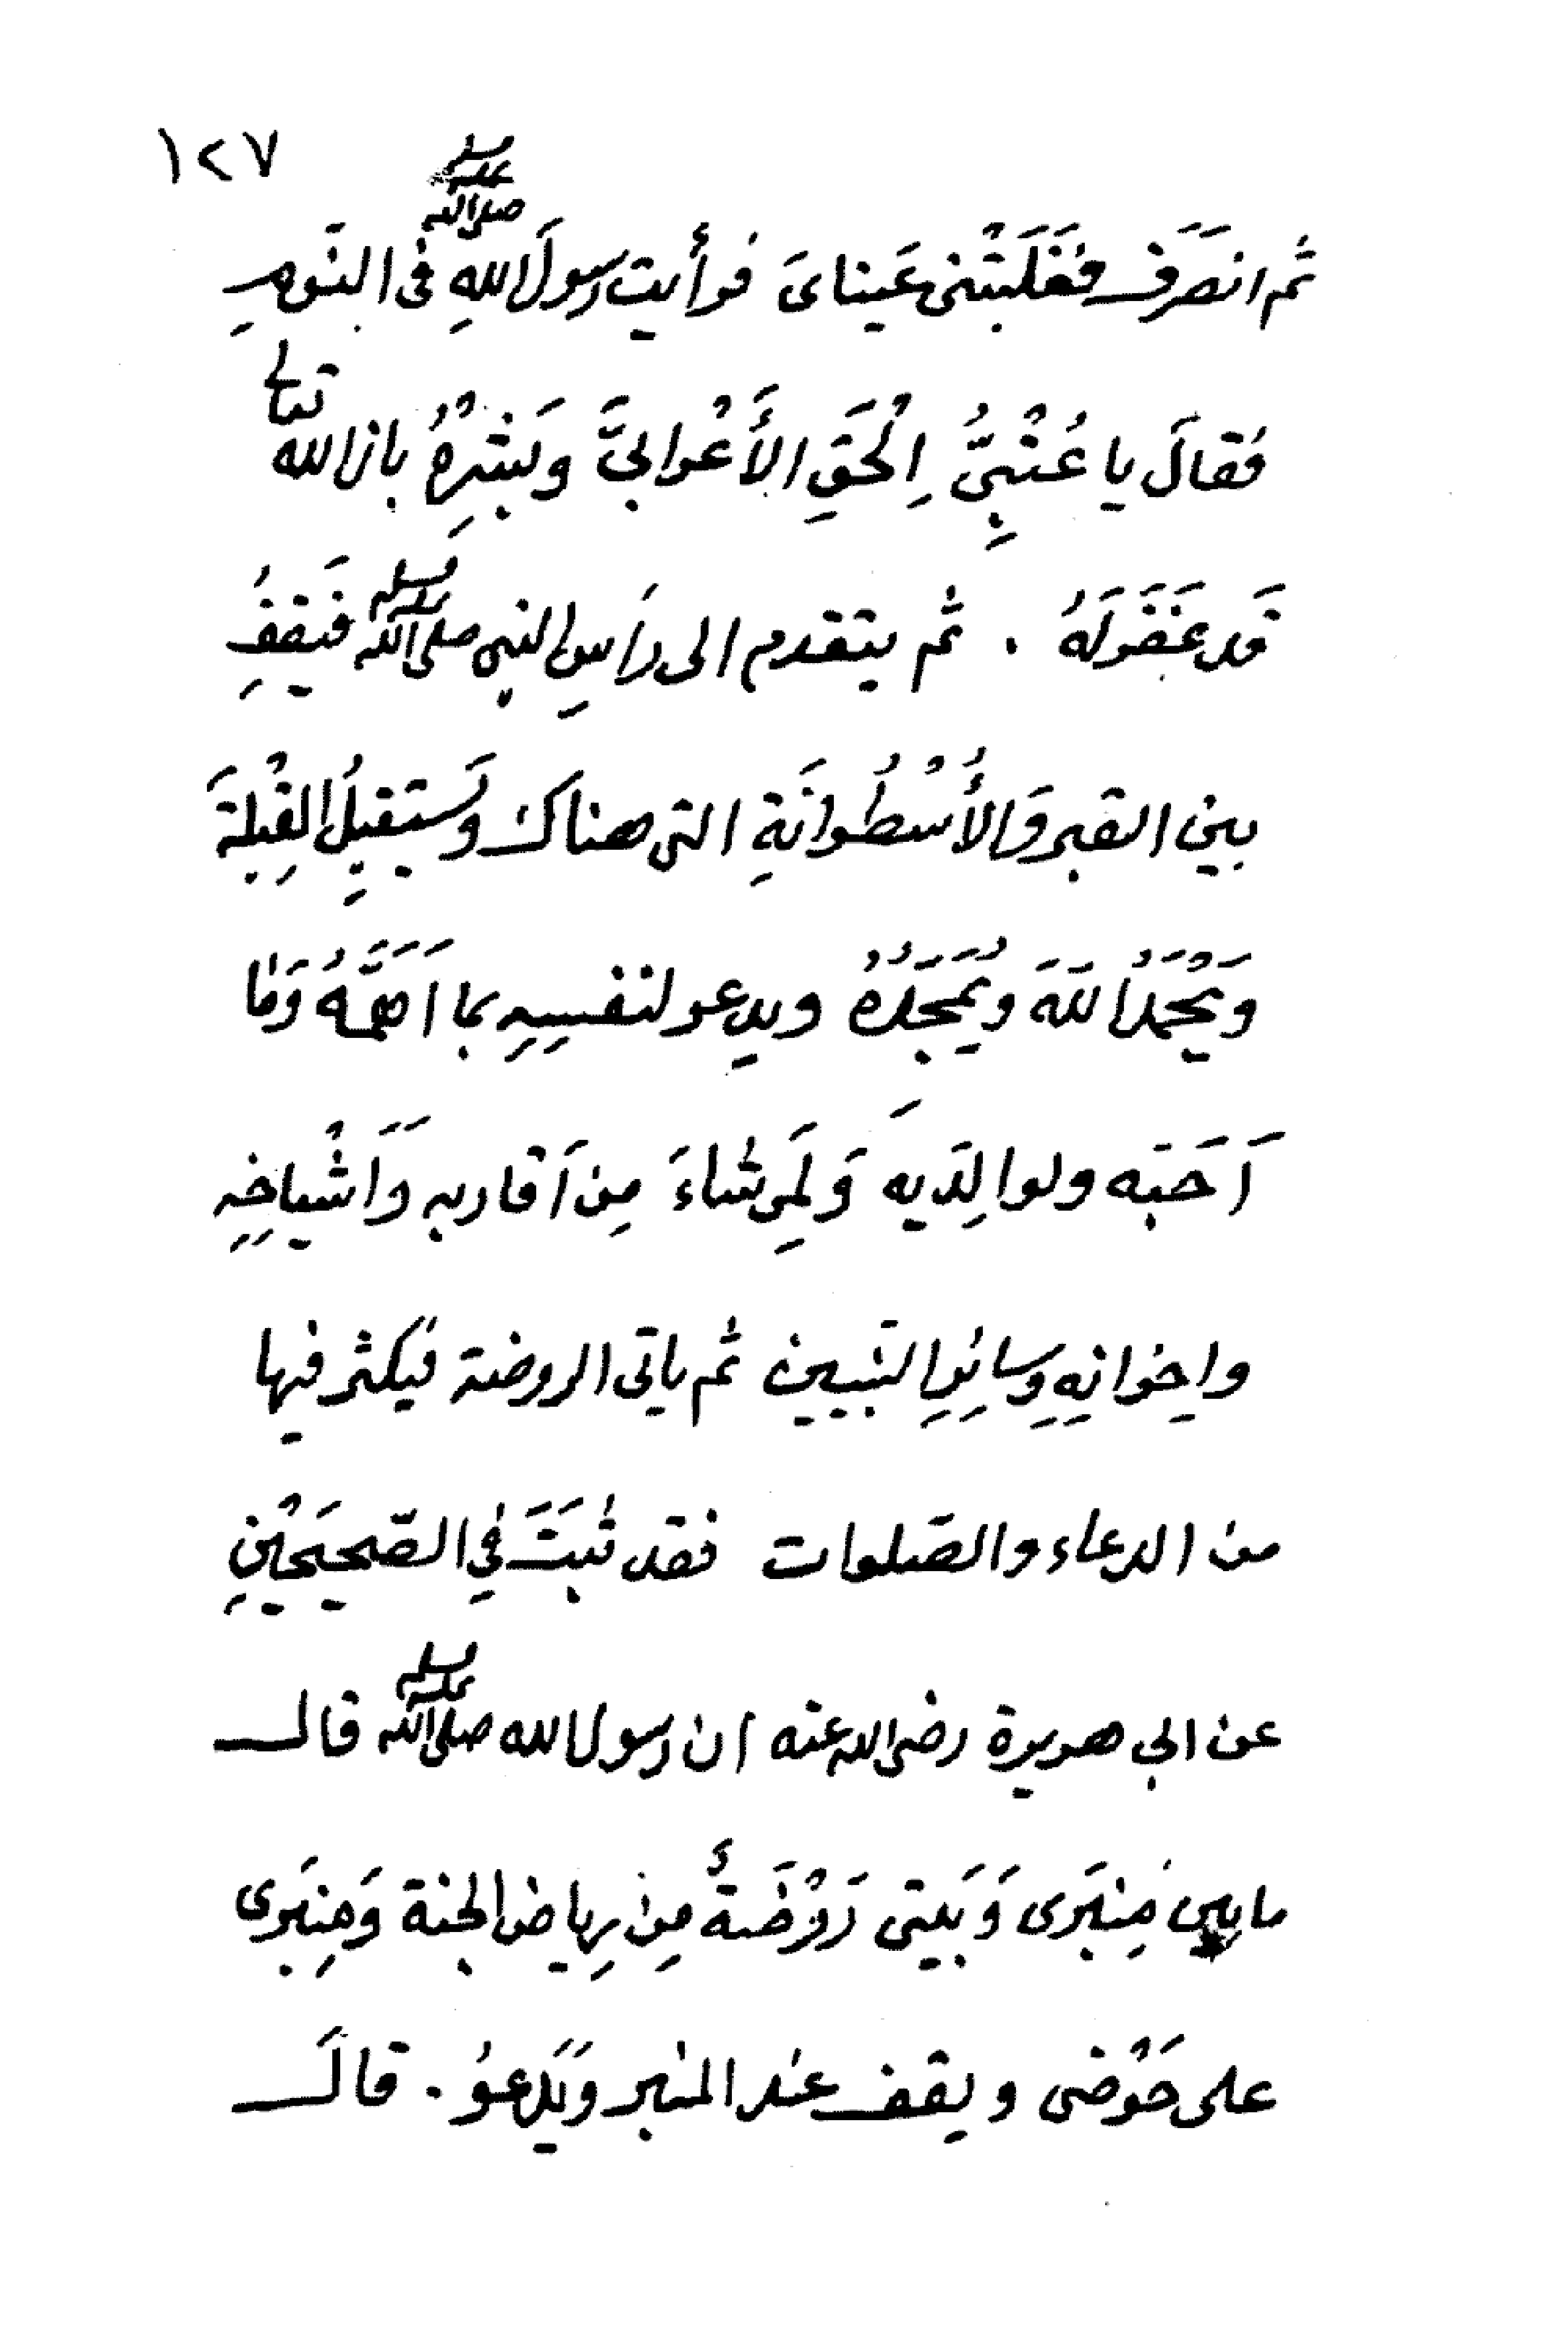 ١٢٧
ثم انصَرَفَ فغَلَبَتْنى عَيناىَ فرأيت رسولَ اللهِ صلى الله عليه وسلم فى النَّومِ
فقالَ يا عُتْبِىُّ اِلْحَقِ الأَعْرابىَّ وبَشِّرْهُ بان الله تعالى
قَد غَفَرَلَهُ . ثم يتقدم الى رَأسِ النبى صلى الله عليه وسلم فَيَقِفُ
بين القبر وَالأُسْطُوانَةِ التى هناك وَيستَقبِلُ القِبْلةَ
وَيَحْمَدُ اللهَ وَيُمَجِّدُهُ ويدعو لنفسِهِ بما اَهَمَّهُ وَمَا
اَحَبَّه ولوالِدَيهِ وَلِمَن شاءَ مِن اَقاربه وَاَشْياخِهِ
واِخوانِهِ وَسائِرِ النَّبيين ثم ياتى الروضة فيكثر فيها
من الدعاء والصّلوات فقد ثَبَتَ فِي الصّحِيحَيْنِ
عن ابى هريرة رضى الله عنه ان رسول الله صلى الله عليه وسلم قال
ما بين مِنبَرى وَبَيتى رَوْضَةٌ مِن رِياض الجنة وَمِنبَرى
على حَوْضى ويقف عند المنبر وَيَدعوُ . قالَ